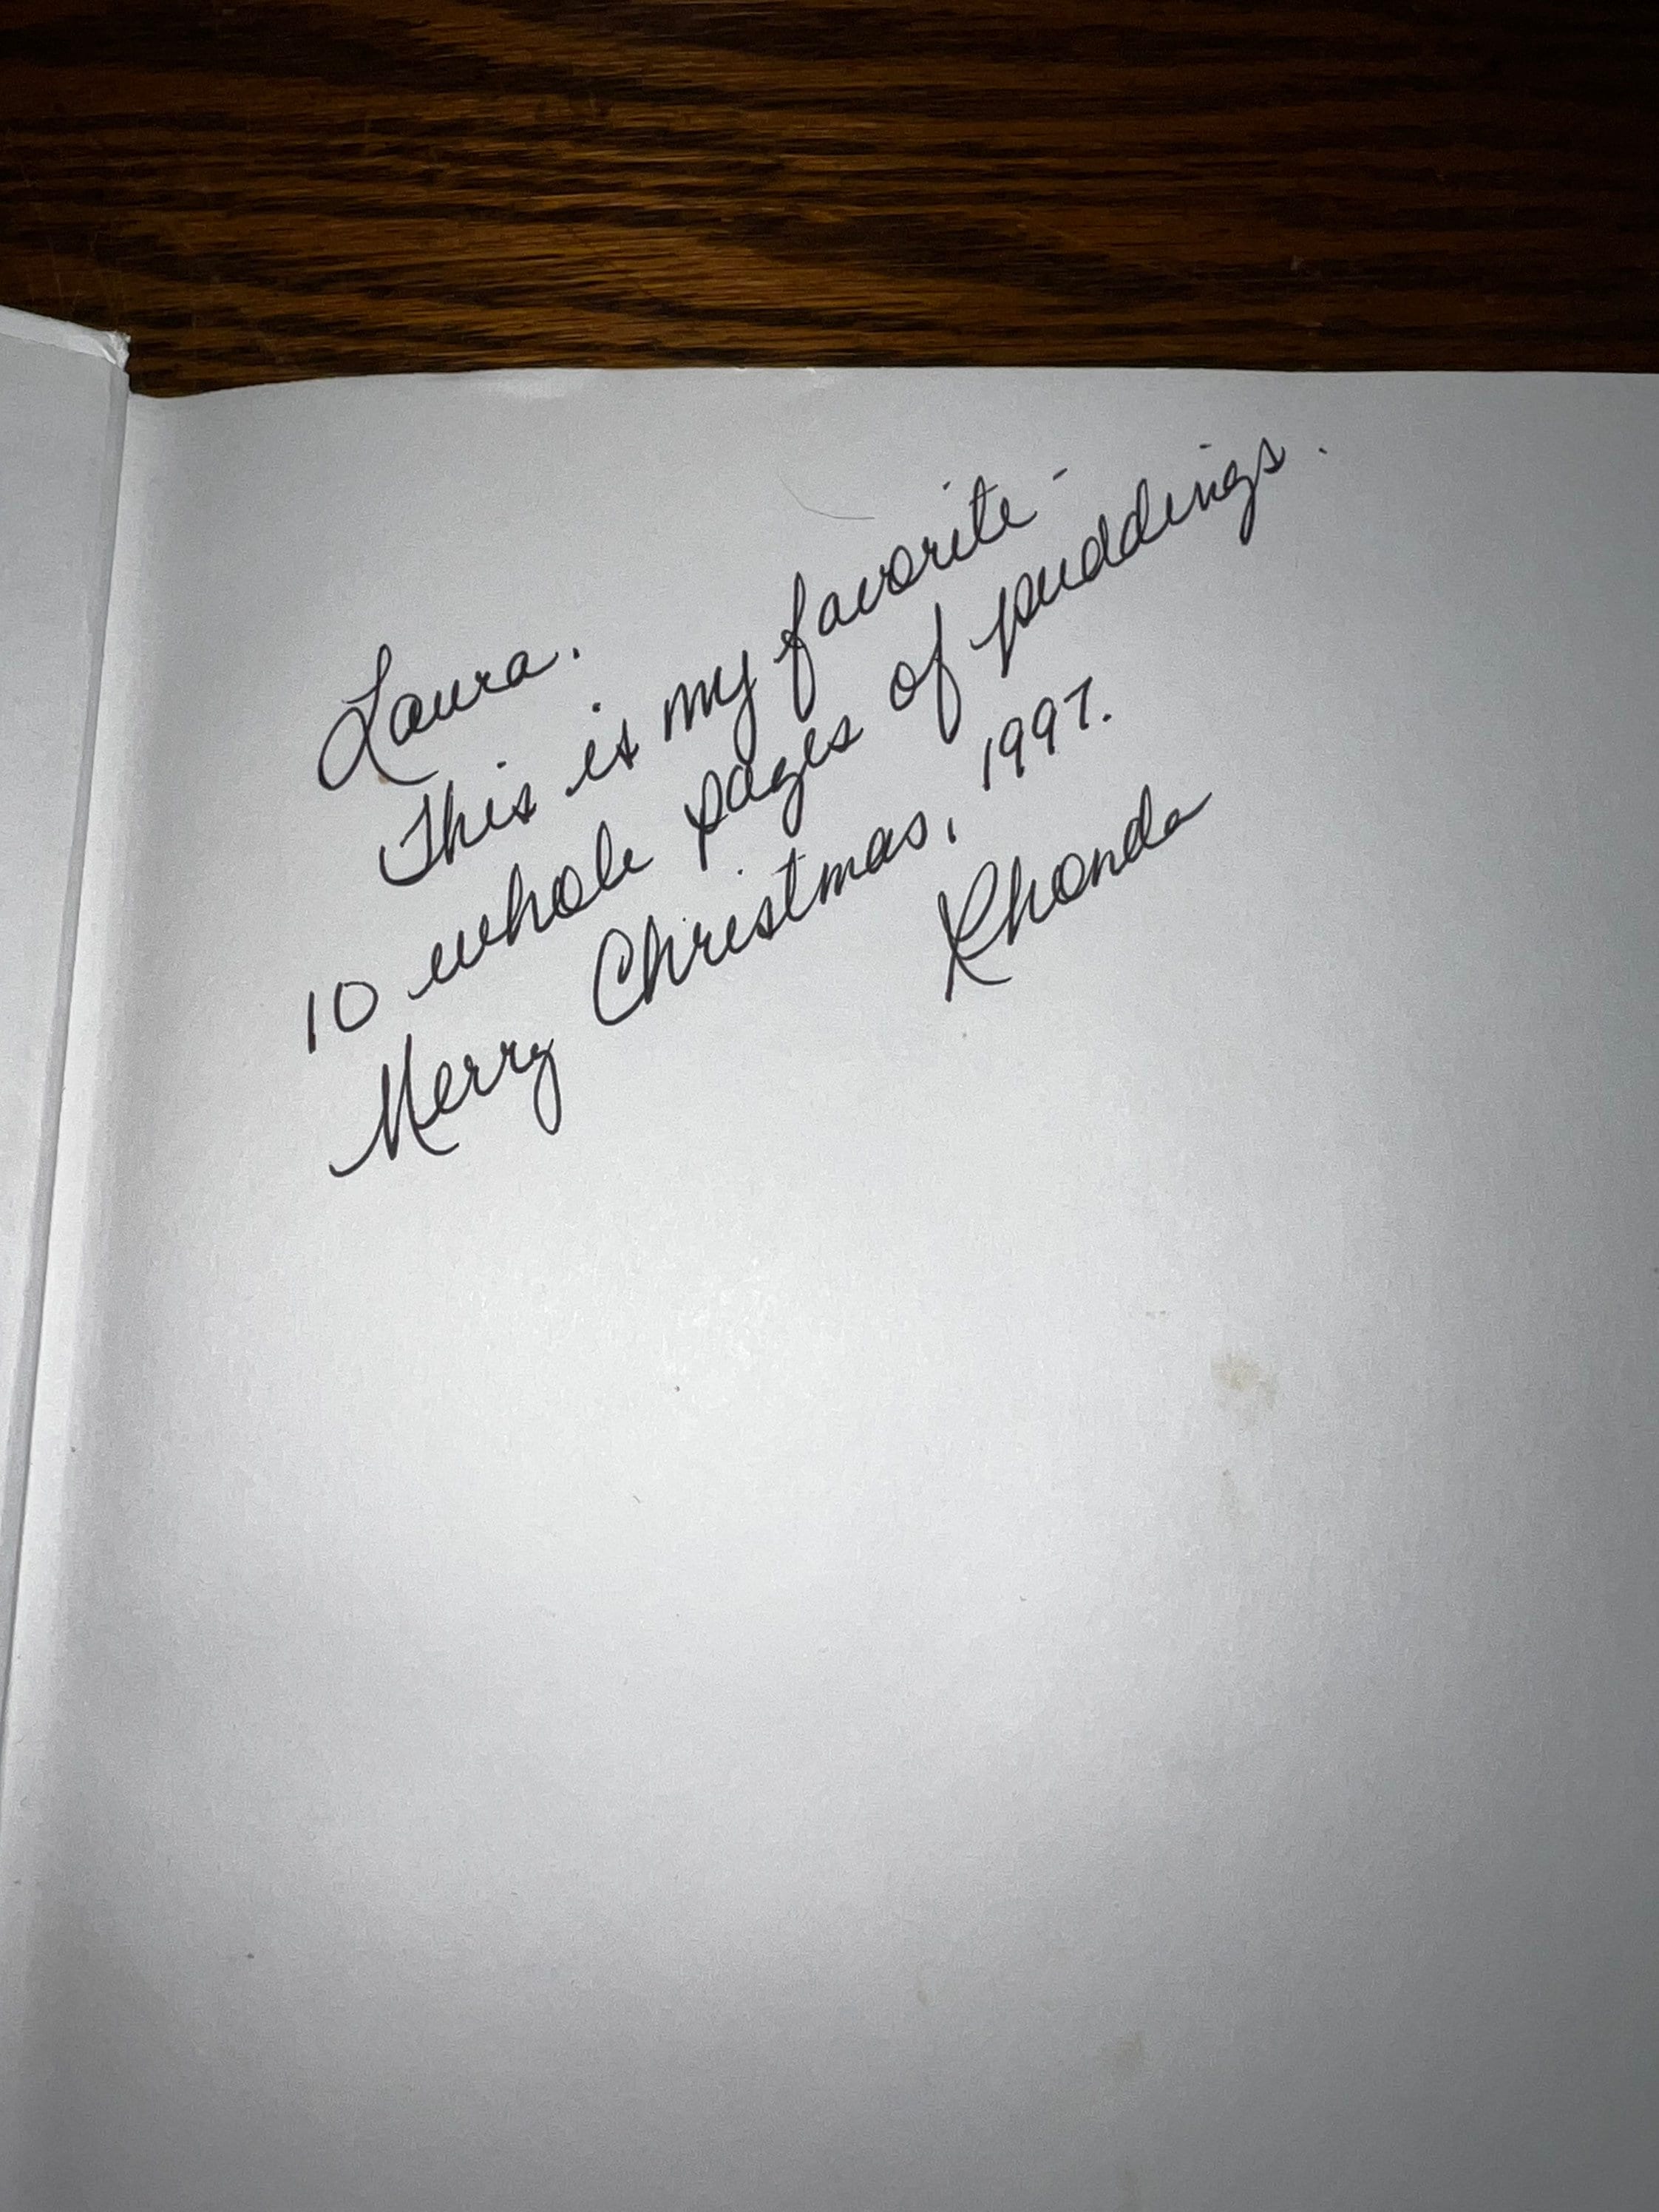 Laura.
This is my favorite -
10 whole pages of puddings.
Merry Christmas, 1997.
Rhonda